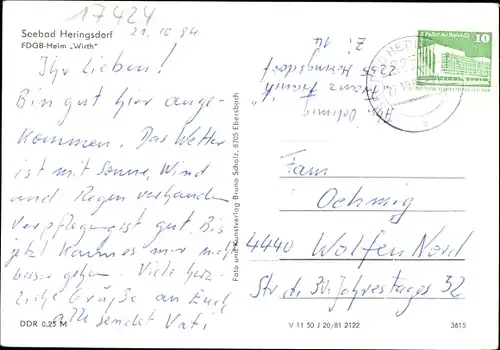 17424
Seebad Heringsdorf
21.10.84
FDGB-Heim „Wirth"
Ihr Lieben!
Bin gut hier ange-
kommen. Das Wetter
ist mit Sonne, Wind
und Regen vorhanden
Verpflegung ist gut. Bis
jetzt kann es mir nicht
besser gehen. Viele herz-
liche Grüße an Euch
alle sendet Vati
DDR 0,25 M
Foto und Kunstverlag Bruno Scholz, 8705 Ebersbach
Oehmig
2255 Heringsdorf
Zi. 14
10
Fam
Oehmig
4440 Wolfen Nord
Str. d. 30. Jahrestages 52
V 11 50 J 20/81 2122
3615